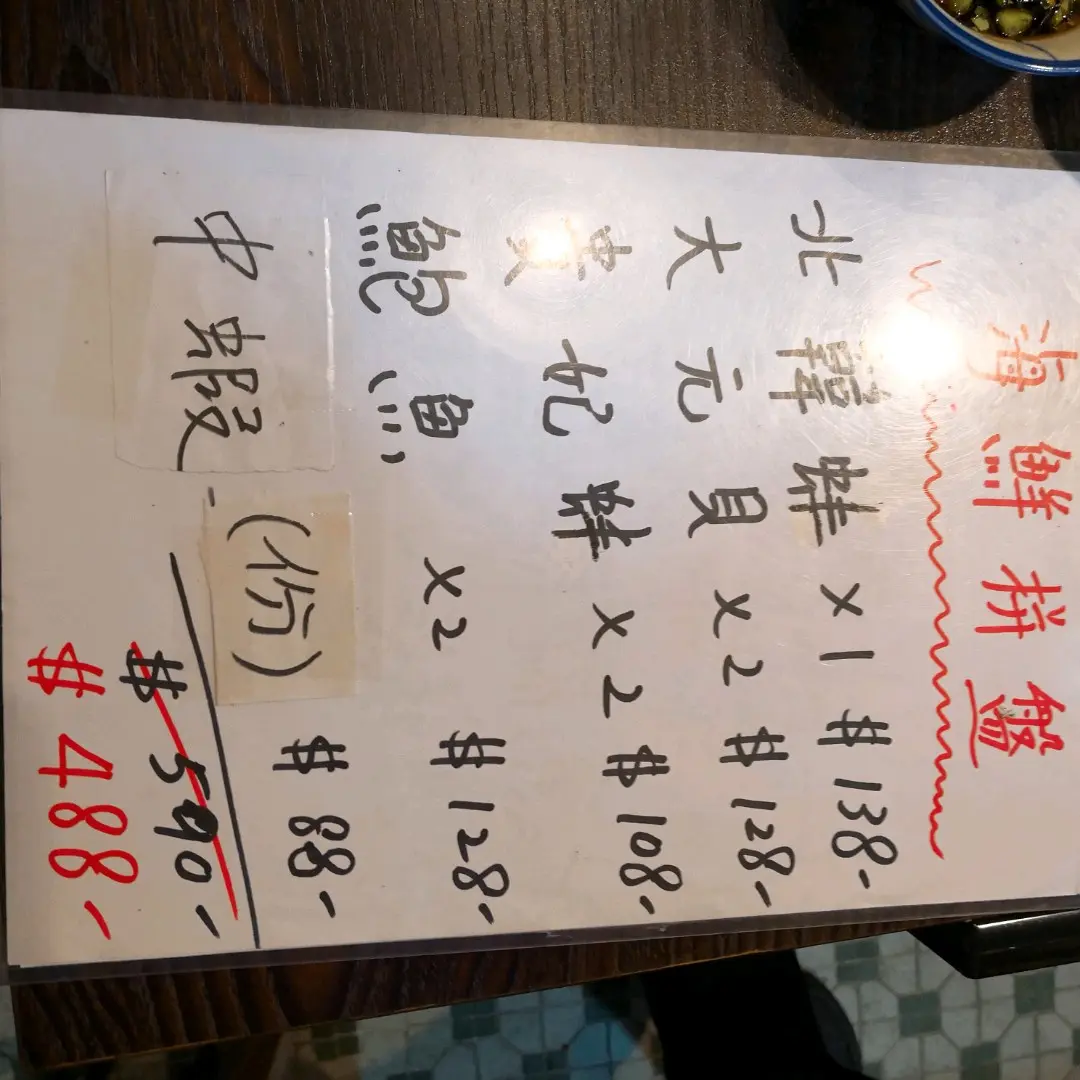 海鮮拼盤
北寄蚌 x1 $138-
大元貝 x2 $128-
貴妃蚌 x2 $108-
鮑魚 x2 $128-
中蝦(份) $88-
$590-
$488-